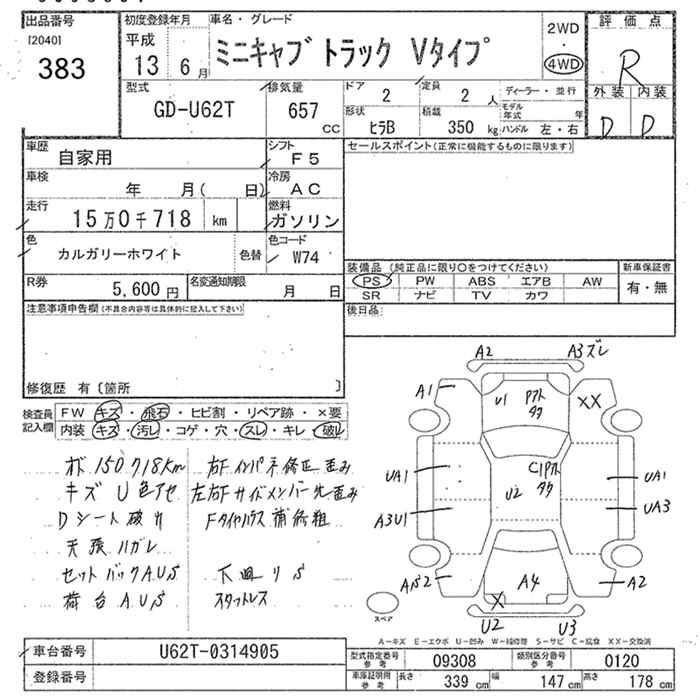 出品番号
[2040]
383
初度登録年月
平成
13 6月
車名・グレード
ミニキャブ トラック Vタイプ
2WD
・
4WD
評価点
R
外装 内装
D D
型式
GD-U62T
排気量
657
CC
ドア 2
定員 2 人
ディーラー・並行
モデル年式 年
形状 ヒラB
積載 350 kg
ハンドル 左・右
車歴 自家用
シフト F5
車検 年 月( 日)
冷房 AC
走行 15万0千718 km
燃料 ガソリン
色 カルガリーホワイト 色替
色コード W74
R券 5,600円
名変通知期限 月 日
セールスポイント(正常に機能するものに限ります)
装備品 (純正品に限り○をつけてください) 新車保証書
PS PW ABS エアB AW 有・無
SR ナビ TV カワ
後日品:
注意事項申告欄(不具合内容等は具体的に記入して下さい)
修復歴 有〔箇所 〕
検査員記入欄
FW キズ・飛石・ヒビ割・リペア跡・×要
内装 キズ・汚レ・コゲ・穴・スレ・キレ・破レ
メーター 150718km
キズ U 色アセ
Dシート破れ
天張ハガレ
セットバックA,U,S
荷台A,U,S
右Fインパネ修正歪み
左右Fサイドメンバー先歪み
Fタイヤハウス補修粗
下廻りS
スタットレス
A2 A3ズレ
A1 U1 XX
UA1 U2 UA1
A3U1 UA3
A4 A2
X
U2 U3
スペア
A-キズ E-エクボ U-凹み W-補修跡 S-サビ C-腐食 XX-交換済
車台番号 U62T-0314905
登録番号
型式指定番号 参考 09308
類別区分番号 参考 0120
車庫証明用 参考
長さ 339 cm 幅 147 cm 高さ 178 cm